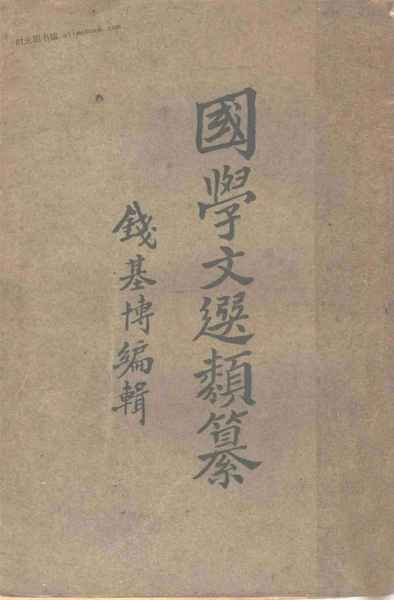 國學文選類纂
錢基博編輯